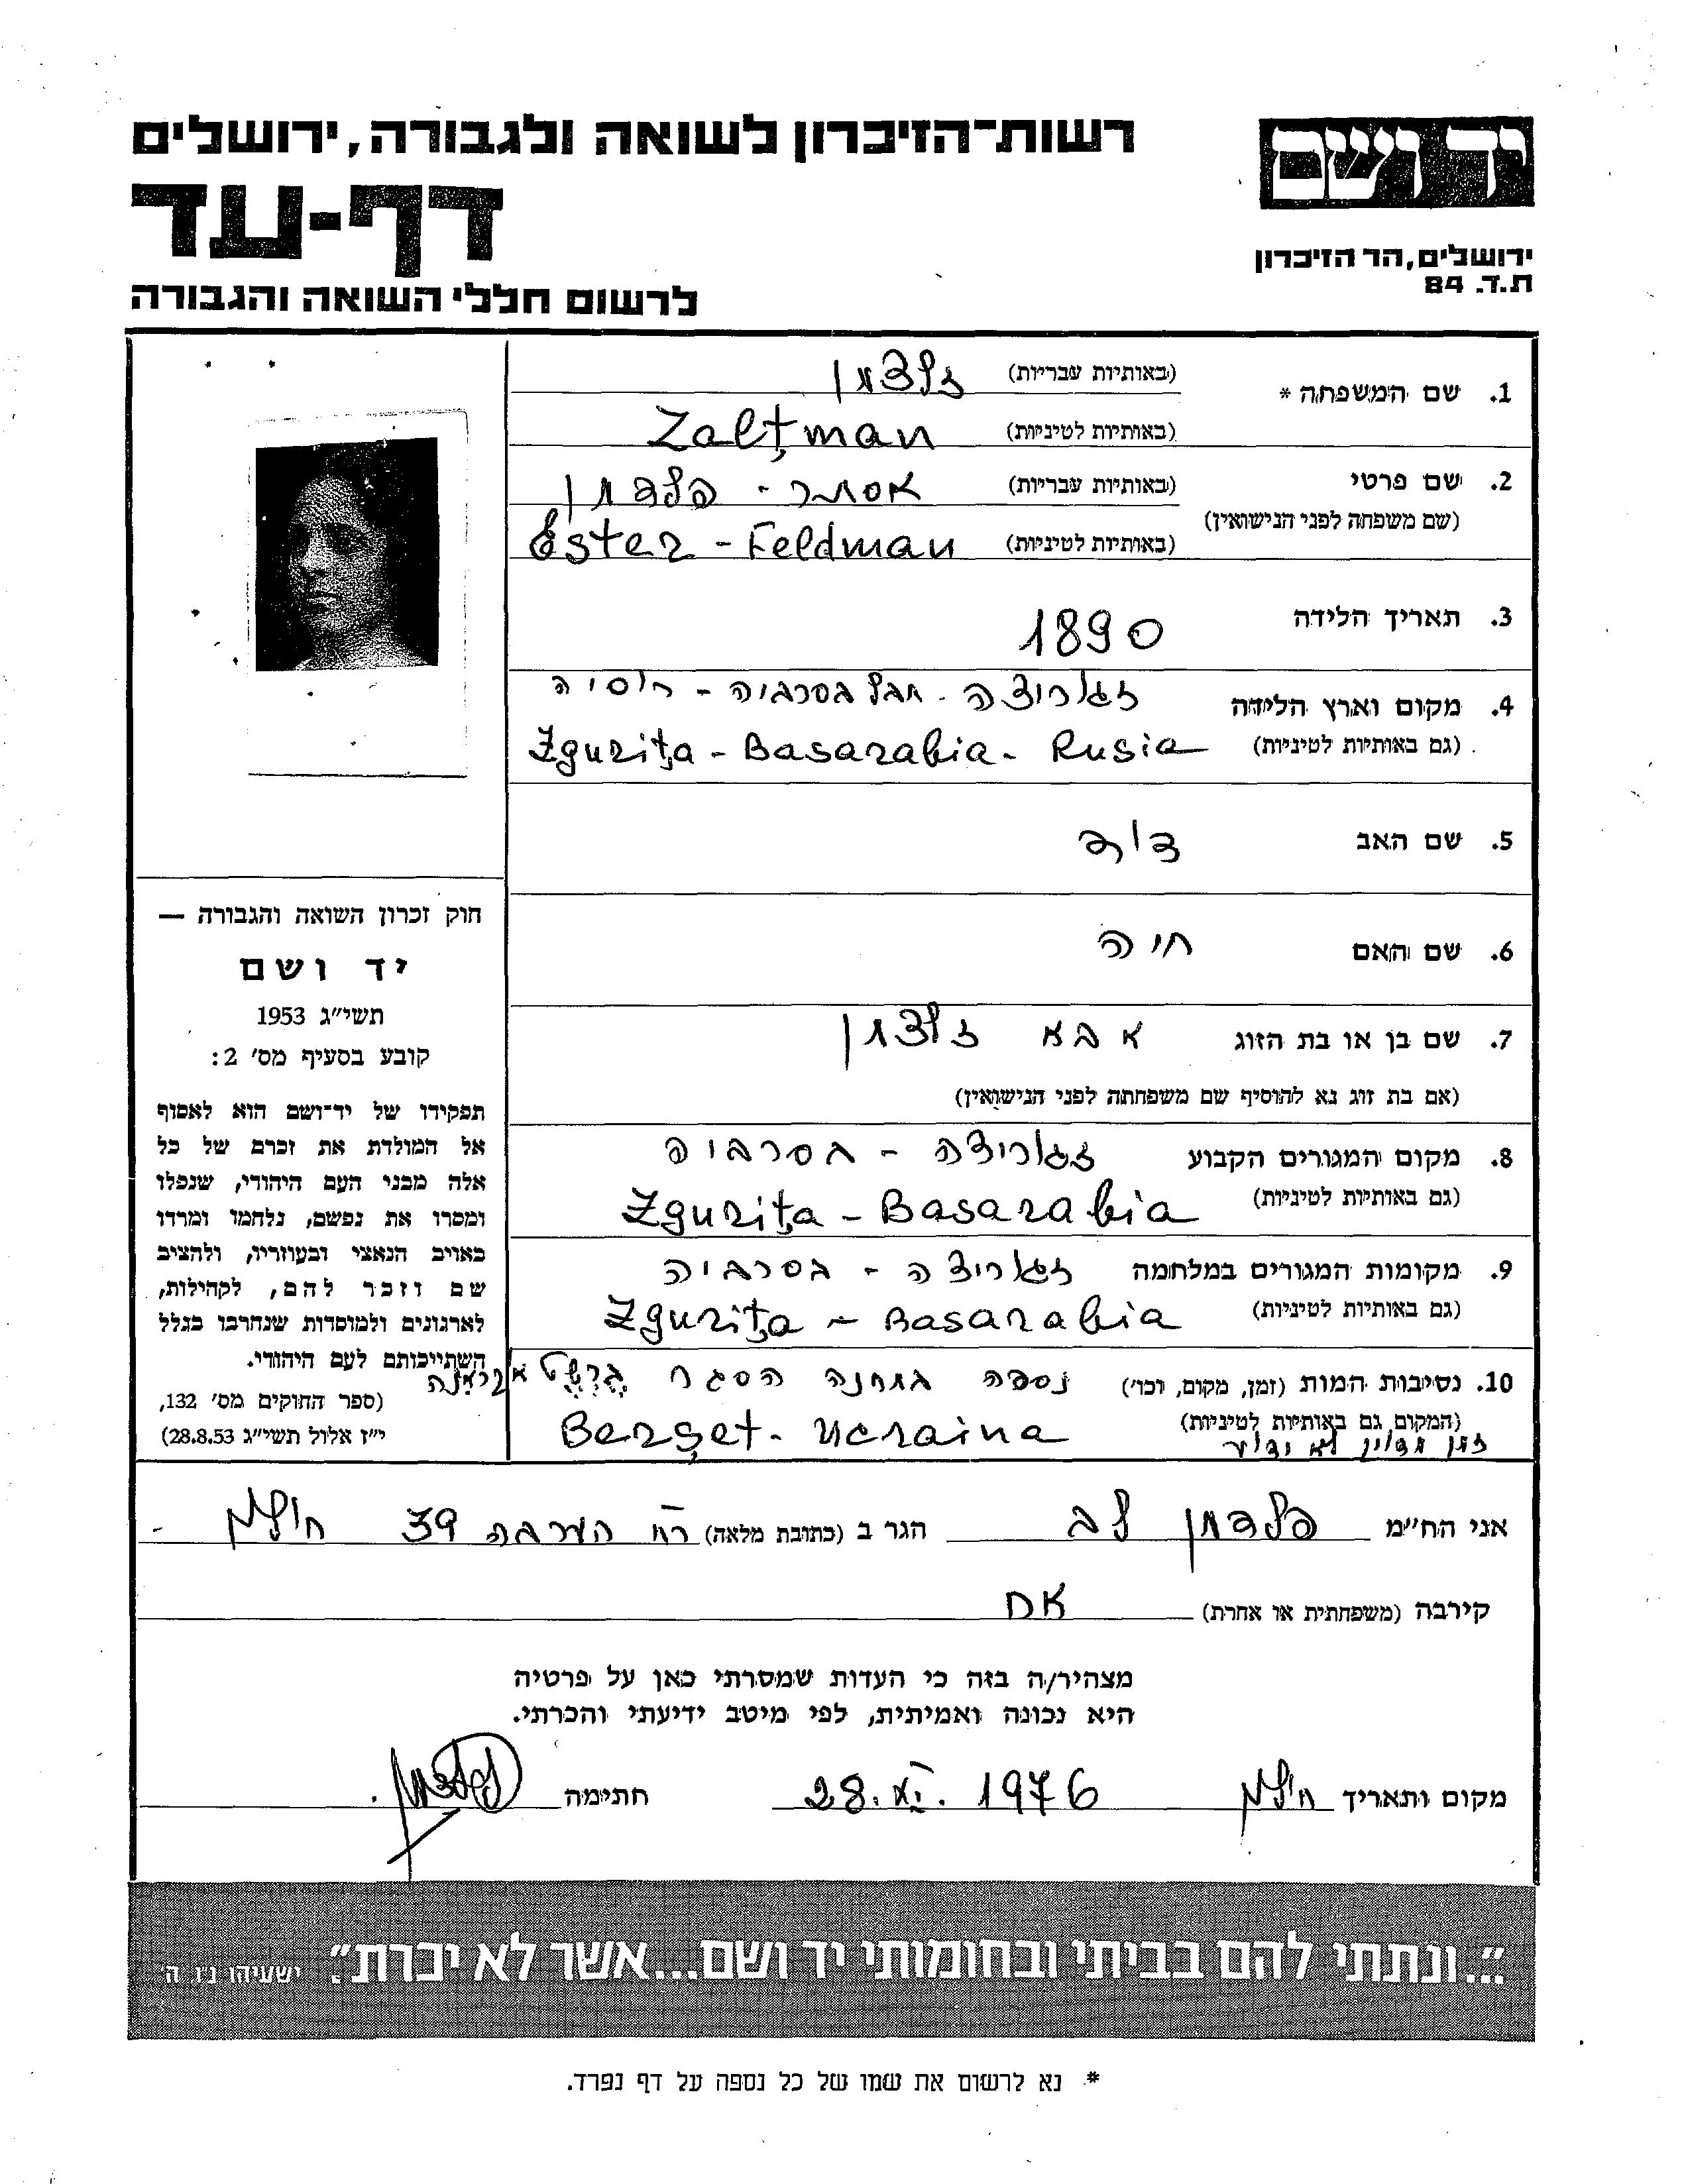 רשות־הזיכרון לשואה ולגבורה, ירושלים
דף-עד
לרשום חללי השואה והגבורה
יד ושם
ירושלים, הר הזיכרון
ת.ד. 84
1. שם המשפחה * (באותיות עבריות) זלצמן
(באותיות לטיניות) Zalţman
2. שם פרטי (באותיות עבריות) אסתר - פלדמן
(שם משפחה לפני הנישואין)
(באותיות לטיניות) Ester - Feldman
3. תאריך הלידה 1890
4. מקום וארץ הלידה זגוריצה - חבל בסרביה - רוסיה
(גם באותיות לטיניות) Zguriţa - Basarabia - Rusia
5. שם האב דוד
6. שם האם חיה
7. שם בן או בת הזוג אבא זלצמן
(אם בת זוג נא להוסיף שם משפחתה לפני הנישואין)
8. מקום המגורים הקבוע זגוריצה - בסרביה
(גם באותיות לטיניות) Zguriţa - Basarabia
9. מקומות המגורים במלחמה זגוריצה - בסרביה
(גם באותיות לטיניות) Zguriţa - Basarabia
10. נסיבות המות (זמן, מקום, וכו') נספה במחנה הסגר בֶּרְשֶׁט אוקראינה
(המקום גם באותיות לטיניות) Berşet - Ucraina
זמן מדויק לא ידוע
חוק זכרון השואה והגבורה —
יד ושם
תשי״ג 1953
קובע בסעיף מס׳ 2:
תפקידו של יד־ושם הוא לאסוף
אל המולדת את זכרם של כל
אלה מבני העם היהודי, שנפלו
ומסרו את נפשם, נלחמו ומרדו
באויב הנאצי ובעוזריו, ולהציב
שם וזכר להם, לקהילות,
לארגונים ולמוסדות שנחרבו בגלל
השתייכותם לעם היהודי.
(ספר החוקים מס׳ 132,
י״ז אלול תשי״ג 28.8.53)
אני הח״מ פלדמן לב הגר ב (כתובת מלאה) רח הערבה 39 חולון
קירבה (משפחתית או אחרת) אח
מצהיר/ה בזה כי העדות שמסרתי כאן על פרטיה
היא נכונה ואמיתית, לפי מיטב ידיעתי והכרתי.
מקום ותאריך חולון 28.XI.1976 חתימה
״...ונתתי להם בביתי ובחומותי יד ושם...אשר לא יכרת״. ישעיהו נ״ו ה׳
* נא לרשום את שמו של כל נספה על דף נפרד.